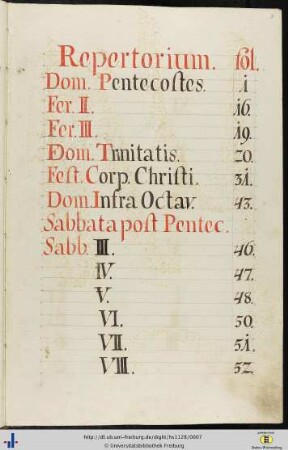 Repertorium. fol.
Dom. Pentecostes. i
Fer. II. i6.
Fer. III. i9.
Dom. Trinitatis. 20.
Fest. Corp. Christi. 3i.
Dom. Infra Octav. 43.
Sabbata post Pentec.
Sabb. III. 46.
IV. 47.
V. 48.
VI. 50.
VII. 5i.
VIII. 52.
http://dl.ub.uni-freiburg.de/diglit/hs1128/0007
© Universitätsbibliothek Freiburg